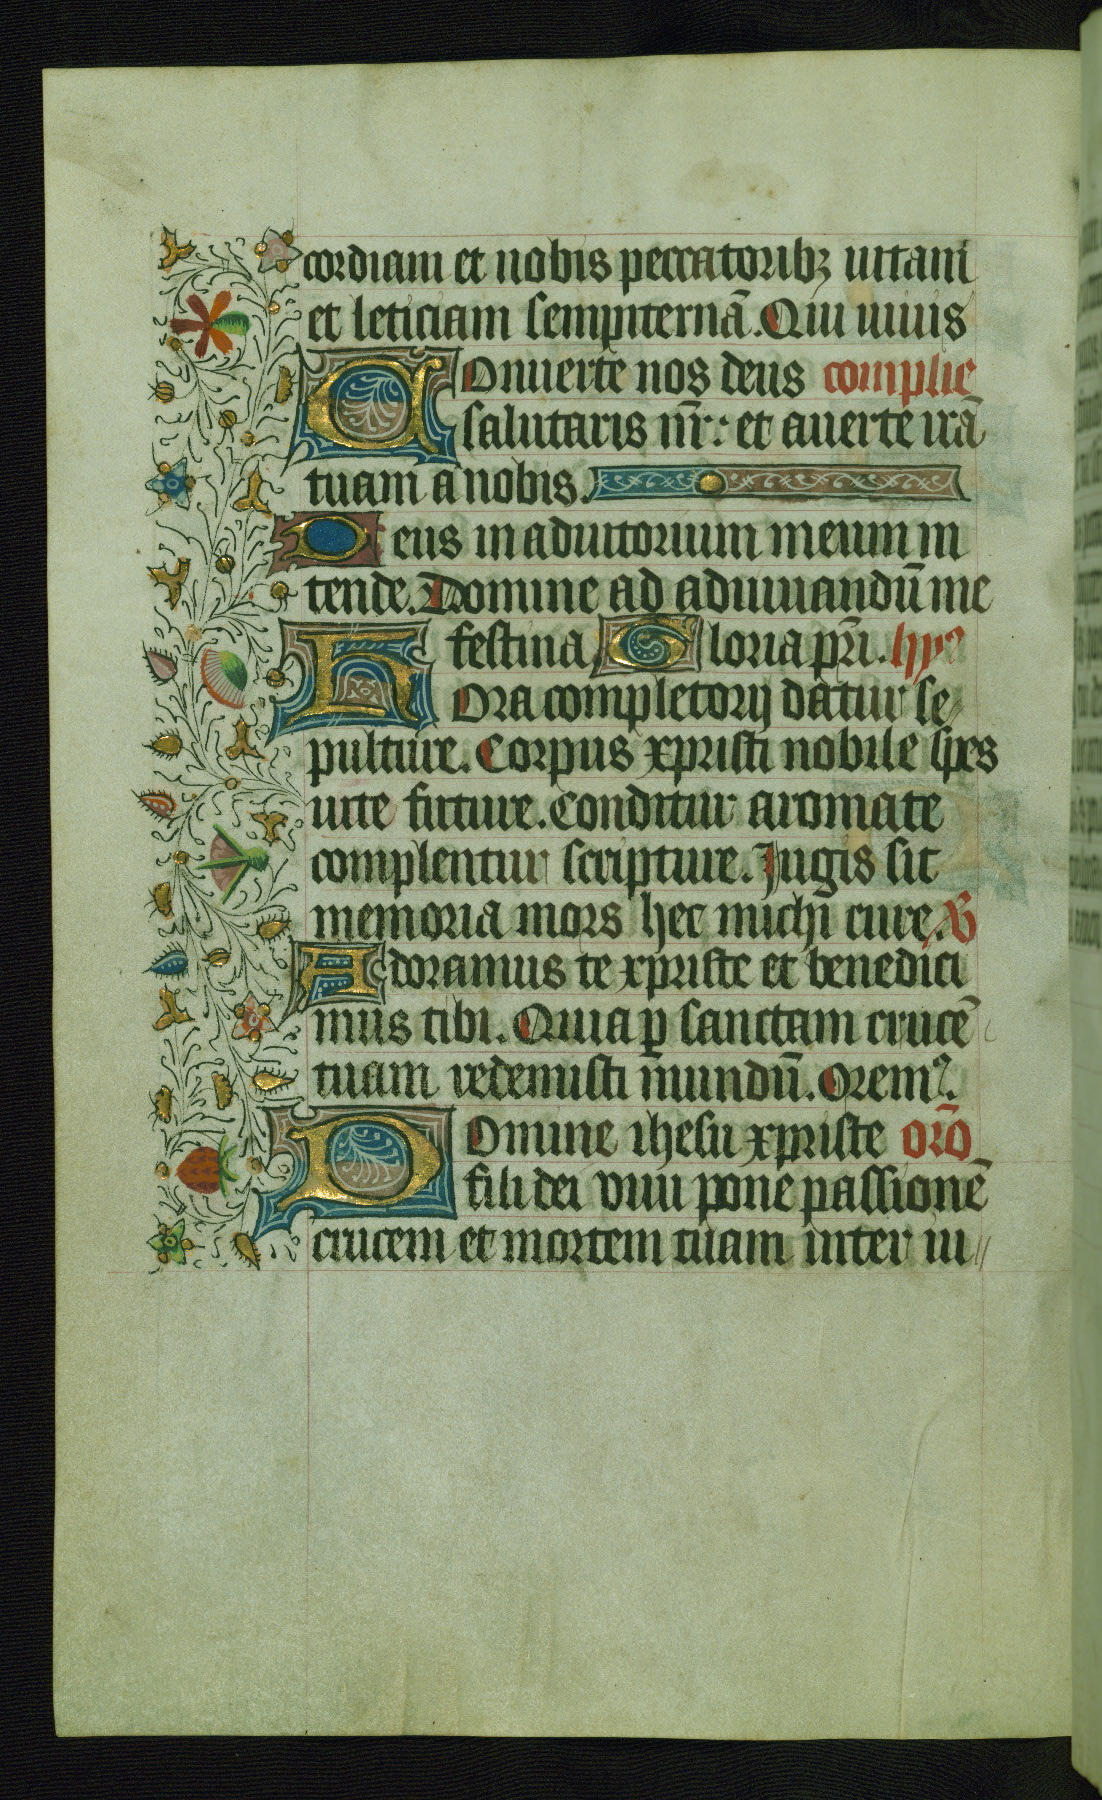 cordiam et nobis peccatoribꝫ uitam
et leticiam sempiternā. Qui uiuis
COnuerte nos deus complie
salutaris nr̄: et auerte irā
tuam a nobis.
Deus in adiutorium meum in
tende. Domine ad adiuuandū me
festina Gloria pr̄i. hy
HOra completorij datur se
pulture. Corpus xpristi nobile spes
uite future. Conditur aromate
complentur scripture. Jugis sit
memoria mors hec michi cure. V
Adoramus te xpriste et benedici
mus tibi. Quia ꝑ sanctam crucē
tuam redemisti mundū. Oremꝰ.
DOmine ihesu xpriste orō
fili dei viui pone passionē
crucem et mortem tuam inter iu